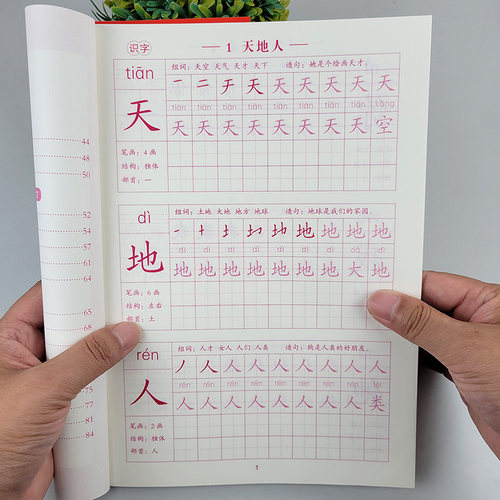 44
48
50
52
54
57
61
64
65
68
75
77
81
84
识字
1 天地人
tiān
天
笔画：4画
结构：独体
部首：一
组词：天空 天气 天才 天下 造句：她是个绘画天才。
一 二 チ 天 天 天 天 天 天
tiān tiān tiān tiān tiān tiān tiān tiān kōng
天 天 天 天 天 天 天 天 空
dì
地
笔画：6画
结构：左右
部首：土
组词：土地 大地 地方 地球 造句：地球是我们的家园。
地 地 地 地
dì dì dì dì dì dì dì dà dì
地 地 地 地 地 地 地 大 地
rén
人
笔画：2画
结构：独体
部首：人
组词：人才 女人 人们 人类 造句：狗是人类的好朋友。
丿 人 人 人 人 人 人 人 人
rén rén rén rén rén rén rén rén lèi
人 人 人 人 人 人 人 人 类
1